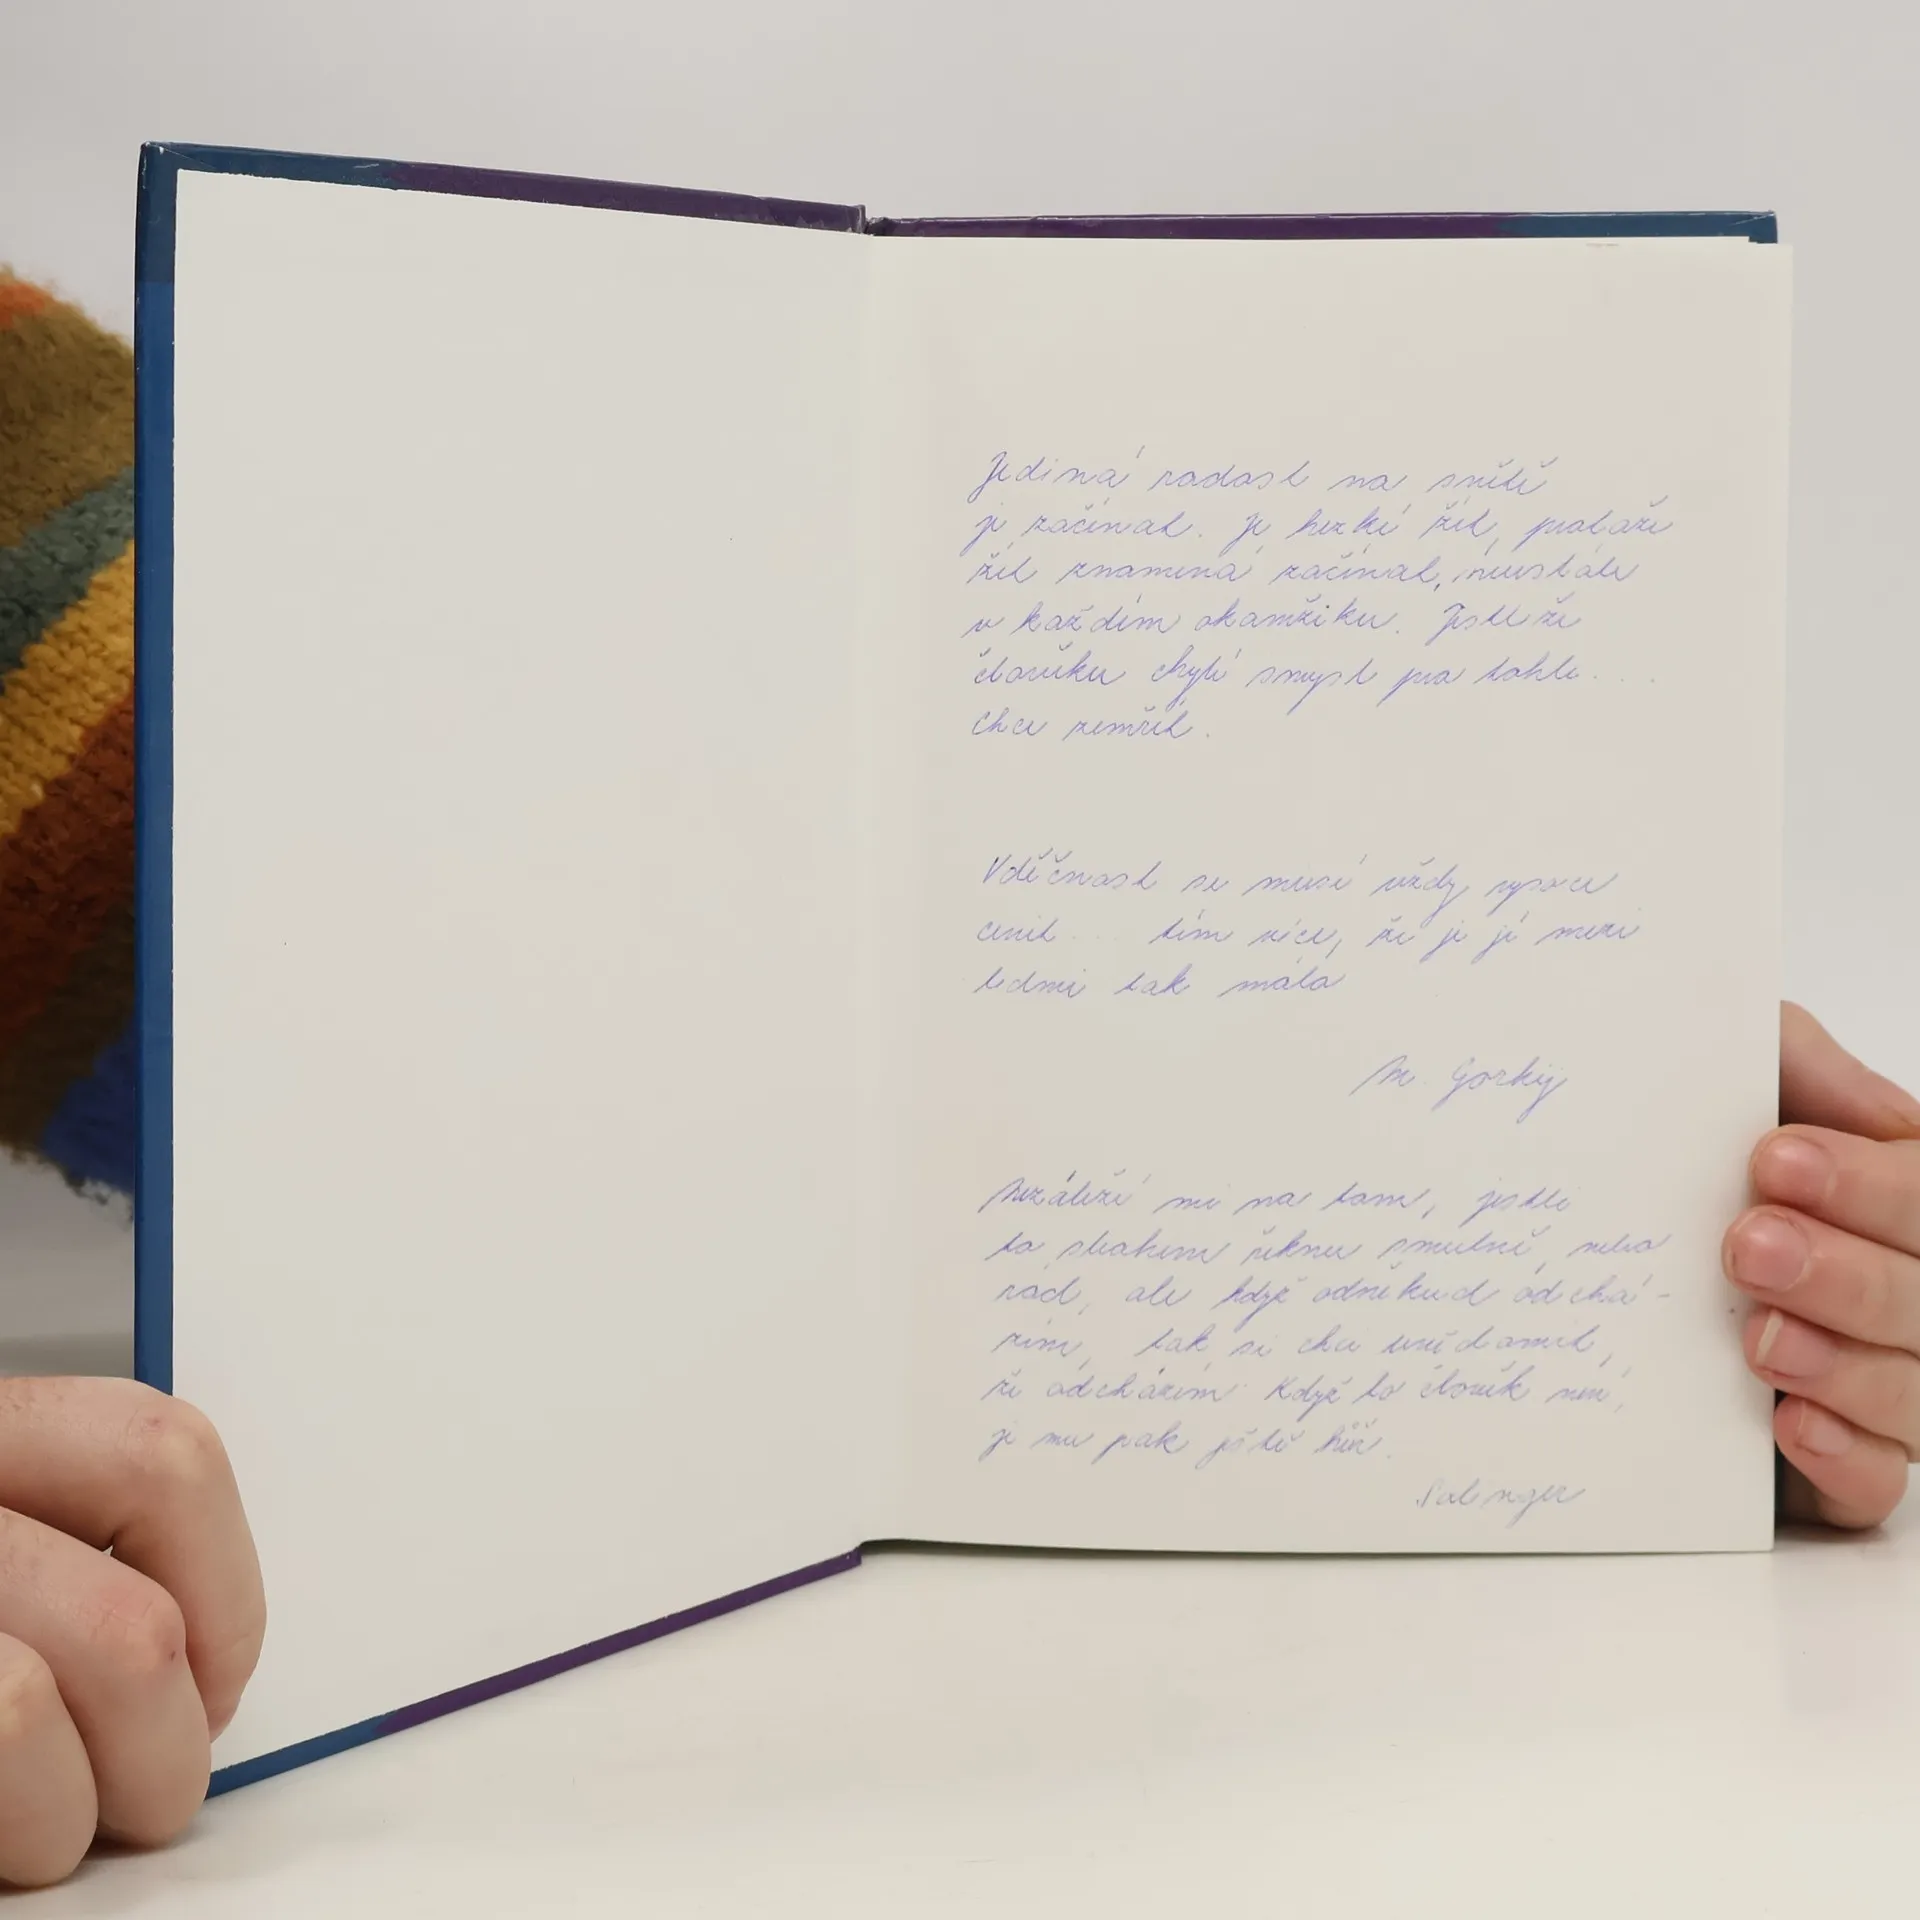 Jediná radost na světě
je začínat. Je hezké žít, protože
žít znamená začínat, neustále
v každém okamžiku. Jestliže
člověku chybí smysl pro tohle....
chce zemřít.
Vděčnost se musí vždy vysoce
cenit... tím více, že je jí mezi
lidmi tak málo
M. Gorkij
Nezáleží mi na tom, jestli
to sbohem řeknu smutně, nebo
rád, ale když odněkud odchá-
zím, tak si chci uvědomit,
že odcházím. Když to člověk neví,
je mu pak ještě hůř.
Salinger